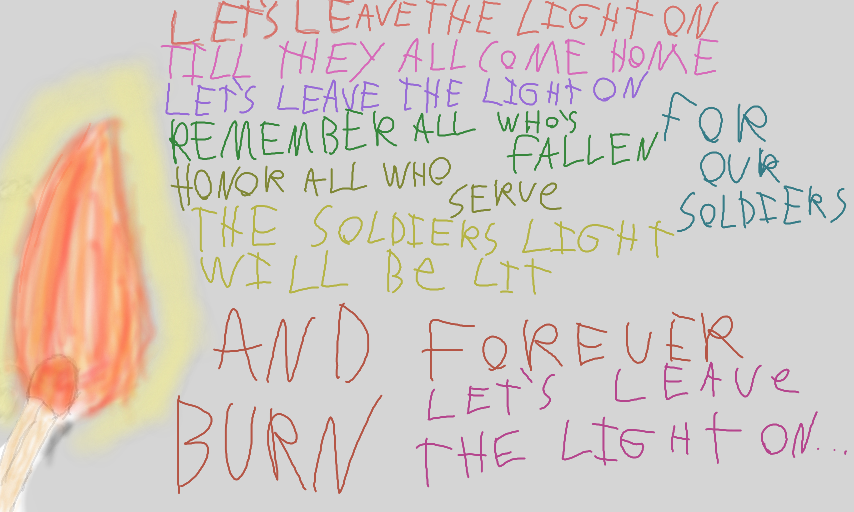 LET'S LEAVE THE LIGHT ON
TILL THEY ALL COME HOME
LET'S LEAVE THE LIGHT ON
FOR
OUR
SOLDIERS
REMEMBER ALL WHO'S
FALLEN
HONOR ALL WHO
SERVE
THE SOLDIERS LIGHT
WILL BE LIT
AND FOREVER
BURN
LET'S LEAVE
THE LIGHT ON...